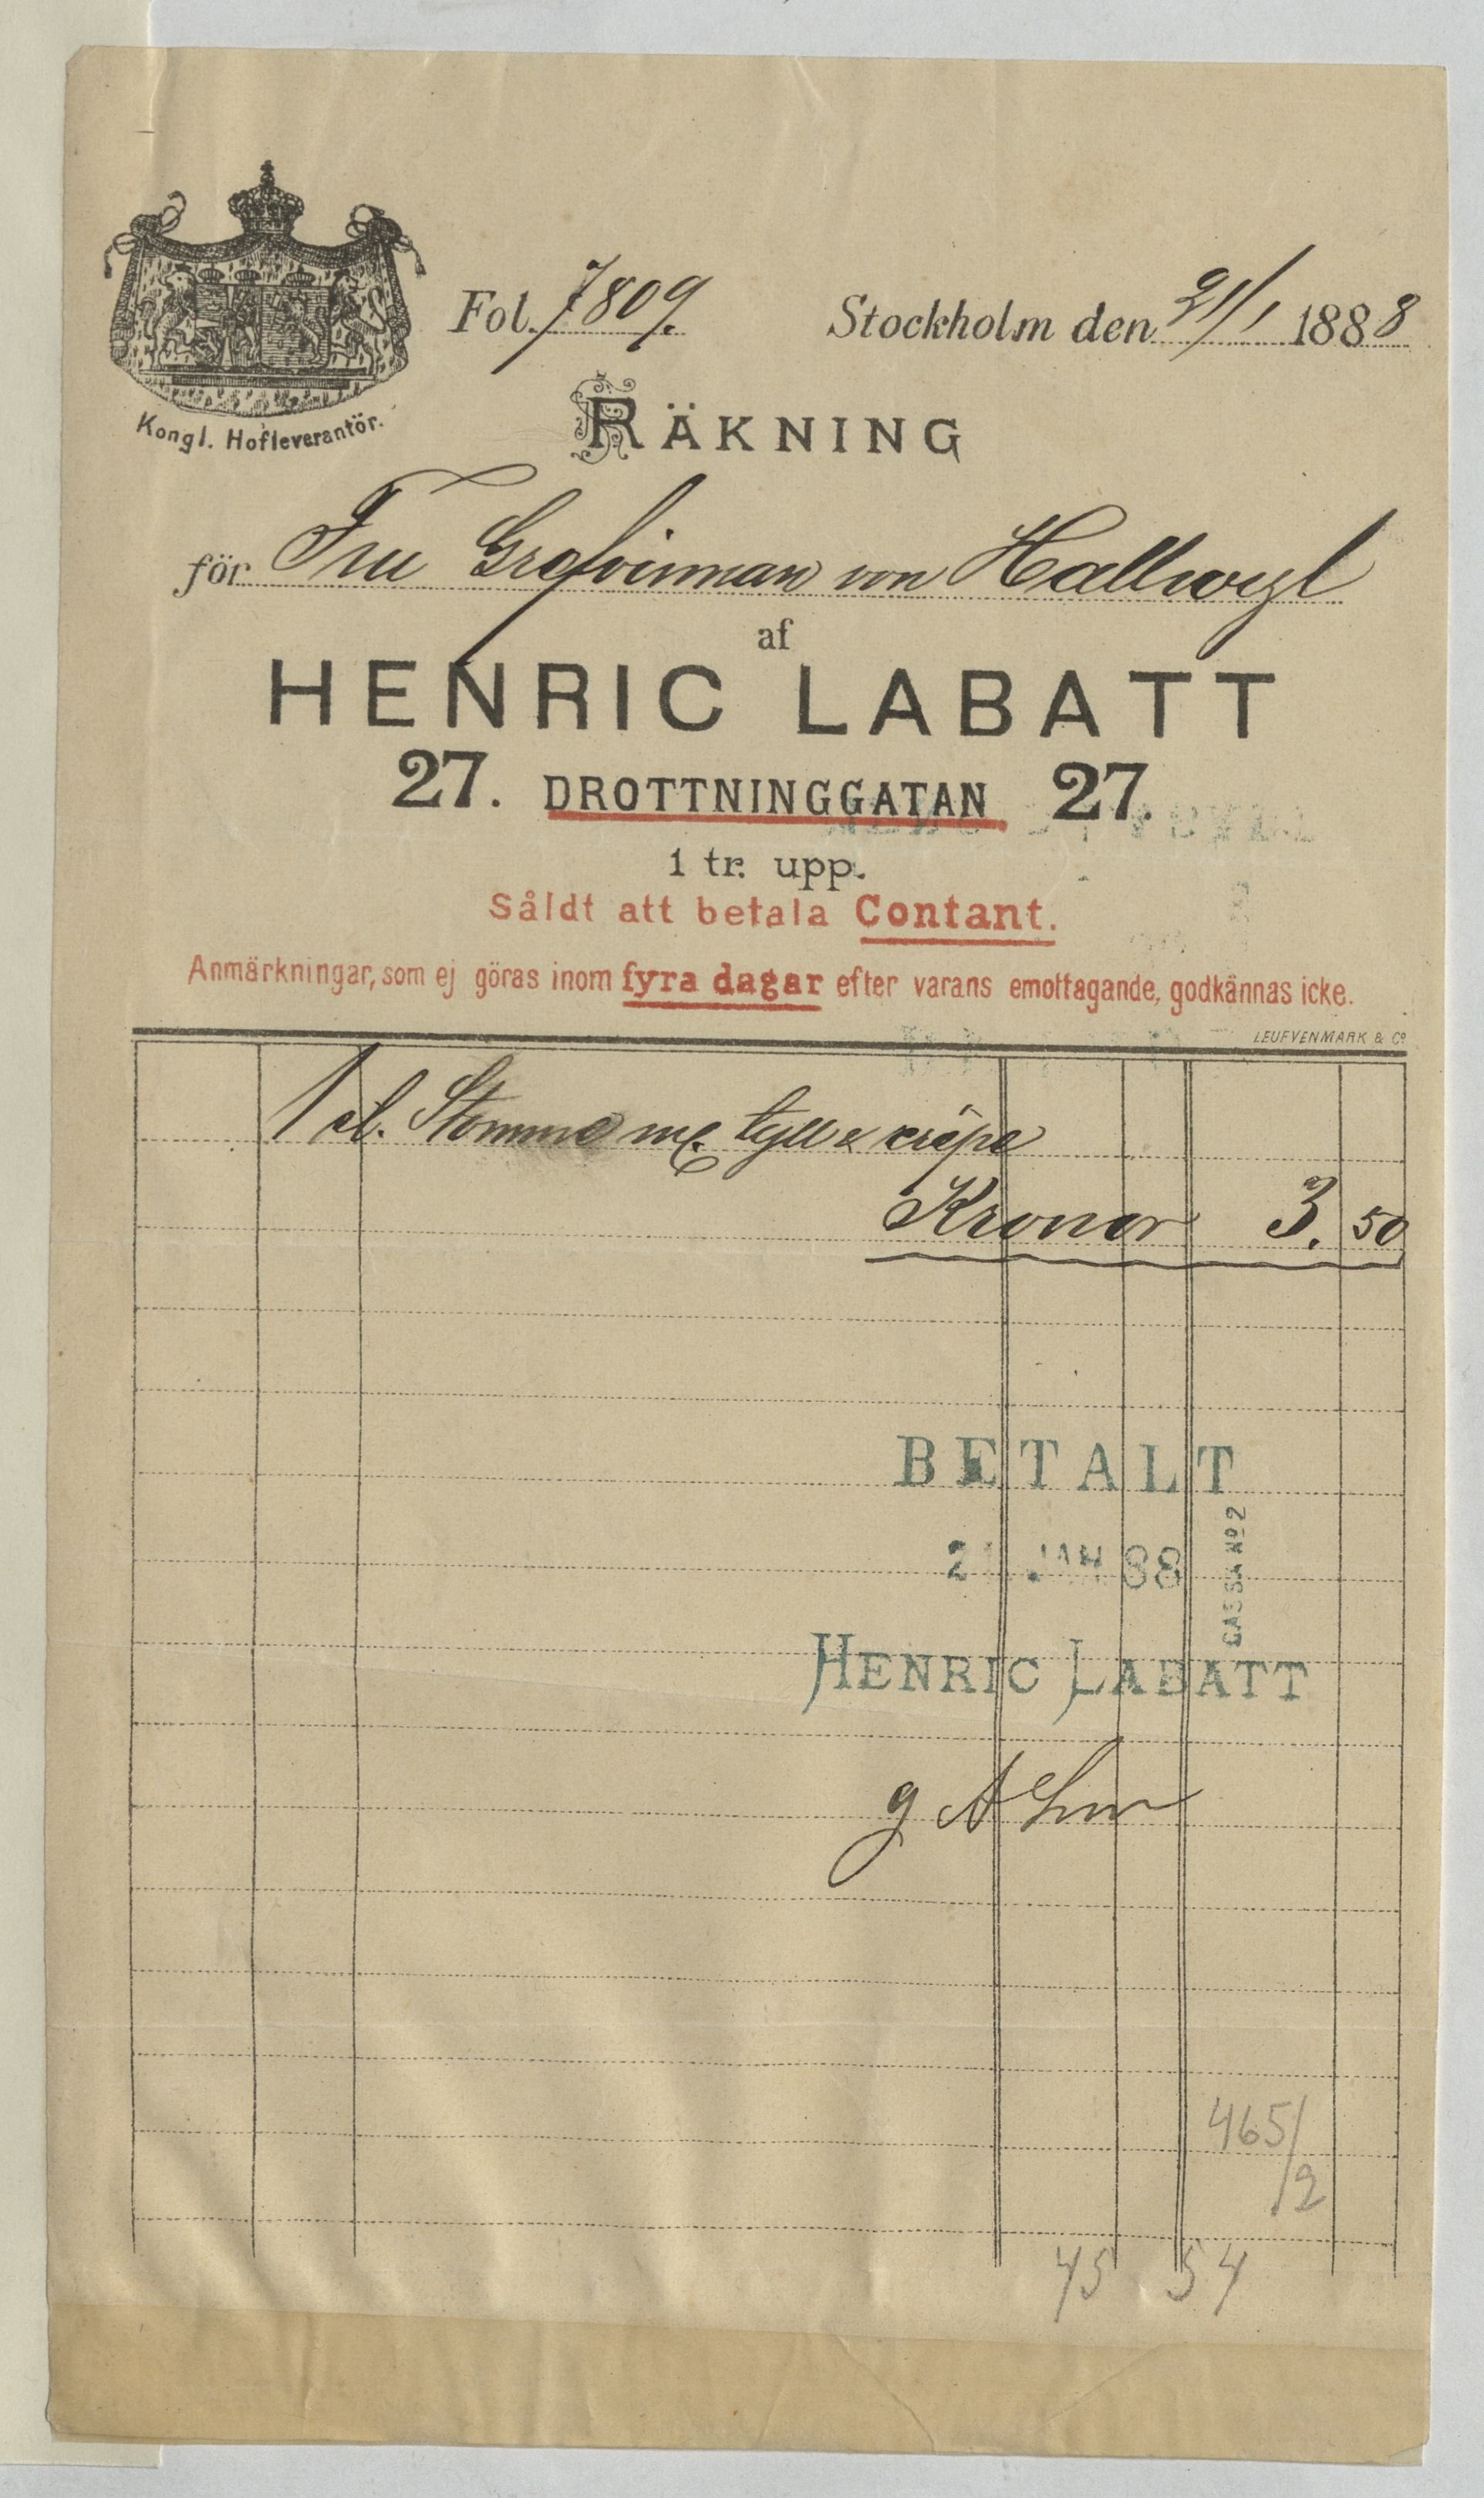 Kongl. Hofleverantör.
Fol. 7809. Stockholm den 21/1 1888
RÄKNING
för Fru Grefvinnan von Hallwyl
af
HENRIC LABATT
27. DROTTNINGGATAN 27.
1 tr. upp.
Såldt att betala Contant.
Anmärkningar, som ej göras inom fyra dagar efter varans emottagande, godkännas icke.
LEUFVENMARK & Co
1 st. Stomme m. tyll & crêpe
Kronor 3. 50
BETALT
21 JAN 88
CASSA No 2
HENRIC LABATT
465/2
45 54